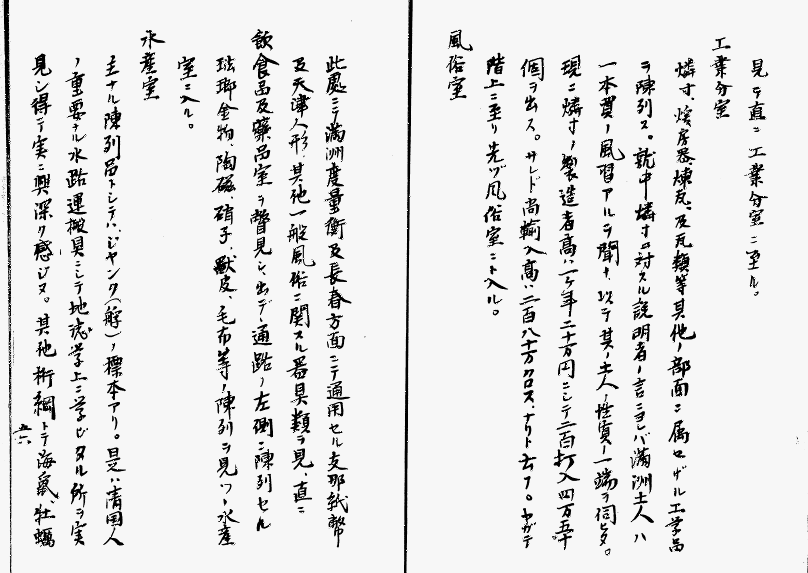 見テ直ニ工業分室ニ至ル。
工業分室
燐寸、煖房器、煉瓦、及瓦類等其他ノ部面ニ属セザル工学品
ヲ陳列ス。就中燐寸ニ対スル説明者ノ言ニヨレバ満洲土人ハ
一本買ノ風習アルヲ聞キ、以テ其ノ土人ノ性質ノ一端ヲ伺ヒタ。
現ニ燐寸ノ製造者高ハ一ケ年二十万円ニシテ二百打入四万五千
個ヲ出ス。サレド尚輸入高ハ二百八十万グロスナリト云フ。ヤガテ
階上ニ至リ先ヅ風俗室ニト入ル。
風俗室
此処ニテ満洲度量衡及長春方面ニテ通用セル支那紙幣
及天津人形、其他一般風俗ニ関スル器具類ヲ見、直ニ
飲食品及藥品室ヲ瞥見シ、出デ通路ノ左側ニ陳列セル
琺瑯金物、陶磁、硝子、獣皮、毛布等ノ陳列ヲ見ツヽ水産
室ニ入ル。
水産室
主ナル陳列品トシテハジヤンク(解)ノ標本アリ。是ハ清国人
ノ重要ナル水路運搬具ニシテ地誌学上ニ学ビタル所ヲ実
見シ得テ実ニ興深ク感ジヌ。其他
綱トテ海鼠、牡蠣
五六